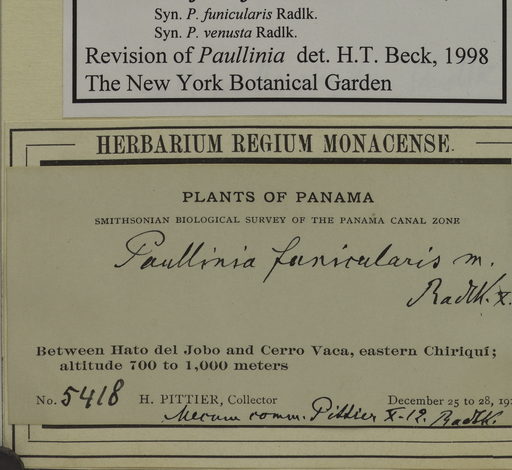 Syn. P. funicularis Radlk.
Syn. P. venusta Radlk.
Revision of Paullinia det. H.T. Beck, 1998
The New York Botanical Garden
HERBARIUM REGIUM MONACENSE.
PLANTS OF PANAMA
SMITHSONIAN BIOLOGICAL SURVEY OF THE PANAMA CANAL ZONE
Paullinia funicularis m.
Radlk.
Between Hato del Jobo and Cerro Vaca, eastern Chiriquí;
altitude 700 to 1,000 meters
No. 5418 H. PITTIER, Collector December 25 to 28,
Mecum comm. Pittier X-12. Radlk.